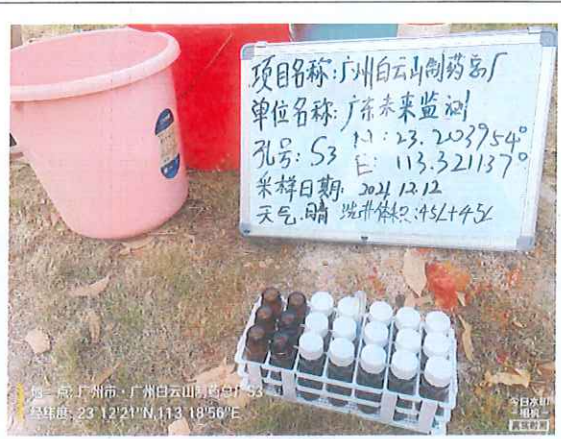 项目名称:广州白云山制药总厂
单位名称:广东未来监测
孔号:S3 N:23.203954°
E:113.321137°
采样日期:2021.12.12
天气:晴 洗井体积:45L+45L
地 点:广州市·广州白云山制药总厂S3
经纬度:23°12'21"N,113°18'56"E
今日水印
相机
真实时间